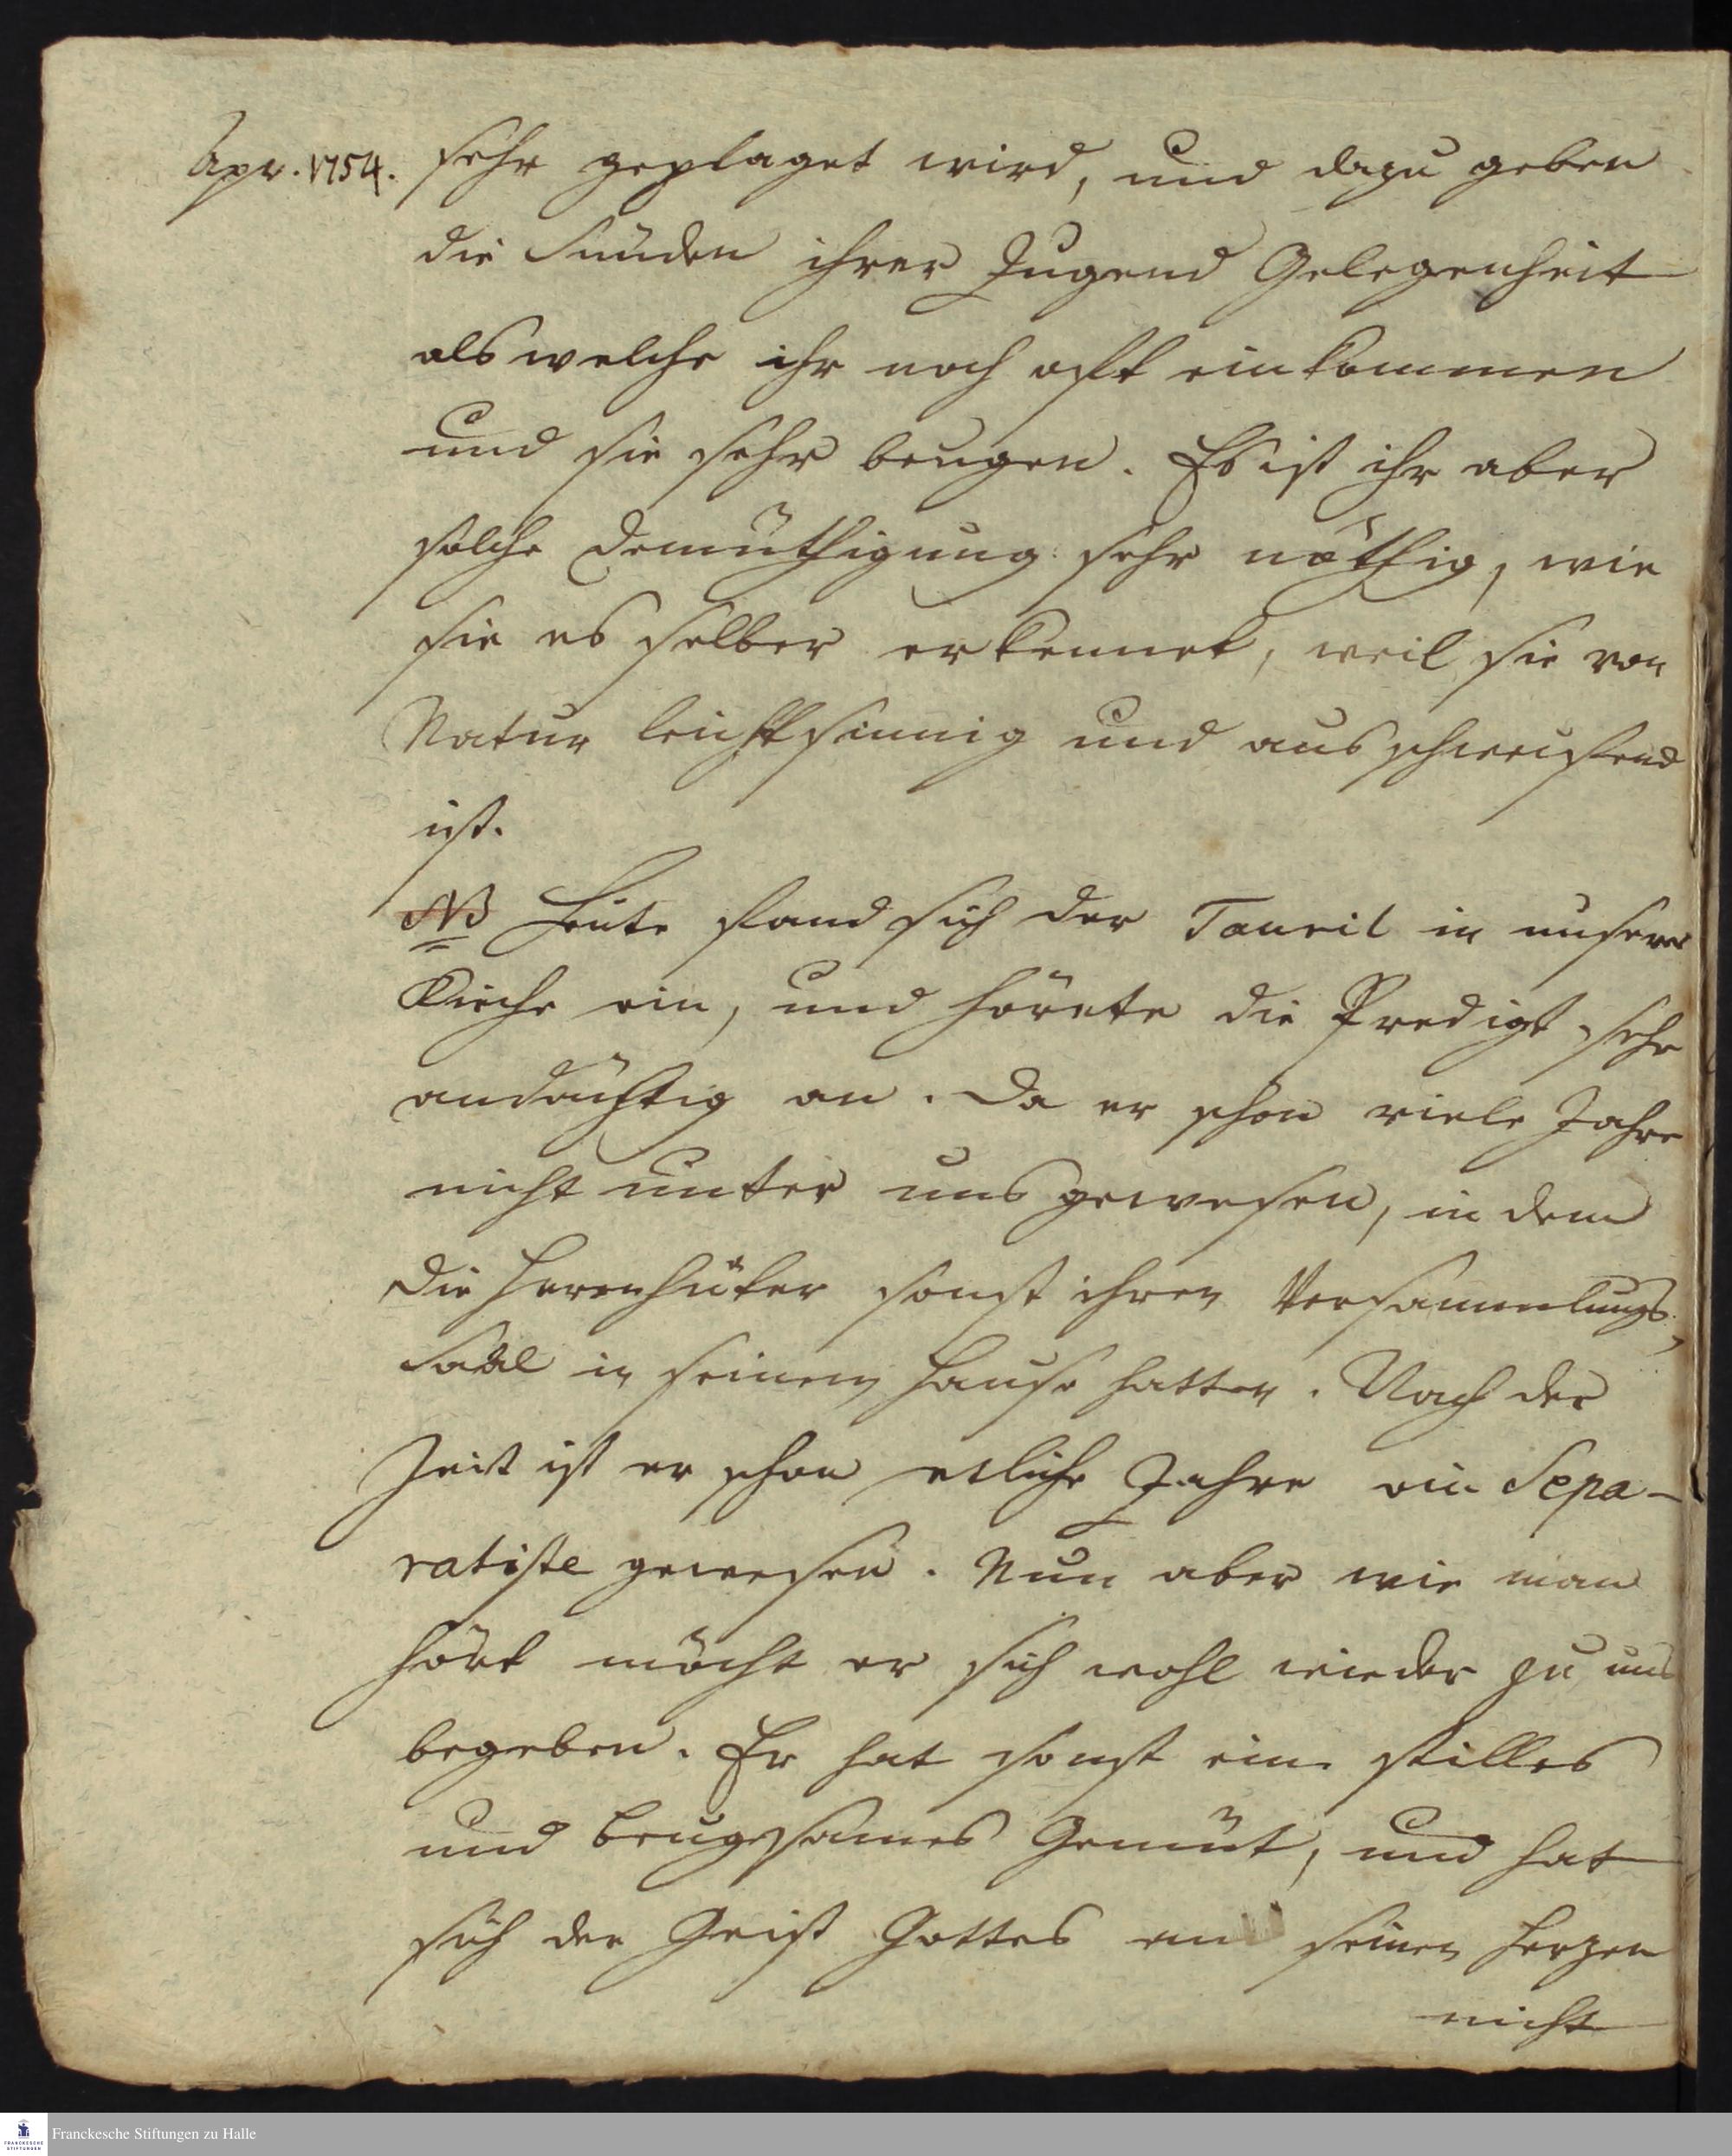 Apr. 1754. sehr geplaget wird, und dazu geben
die Sünden ihrer Jugend Gelegenheit
als welche ihr noch oft einkommen
und sie sehr beugen. Es ist ihr aber
solche Demüthigung sehr nöthig, wie
sie es selber erkennet, weil sie von
Natur leichtsinnig und ausschweifend
ist.
NB Heute fand sich der Tauril in unserer
Kirche ein, und hörete die Predigt sehr
andächtig an. Da er schon viele Jahre
nicht unter uns gewesen, in dem
die Herrnhüter sonst ihren Versammlungs-
Saal in seinem Hause hatten. Nach der
Zeit ist er schon etliche Jahre ein Sepa-
ratiste gewesen. Nun aber wie man
hört möcht er sich wohl wieder zu uns
begeben. Er hat sonst ein stilles
und beugsames Gemüt, und hat
sich der Geist Gottes an seinen Herzen
nicht
Franckesche Stiftungen zu Halle
FRANCKESCHE
STIFTUNGEN